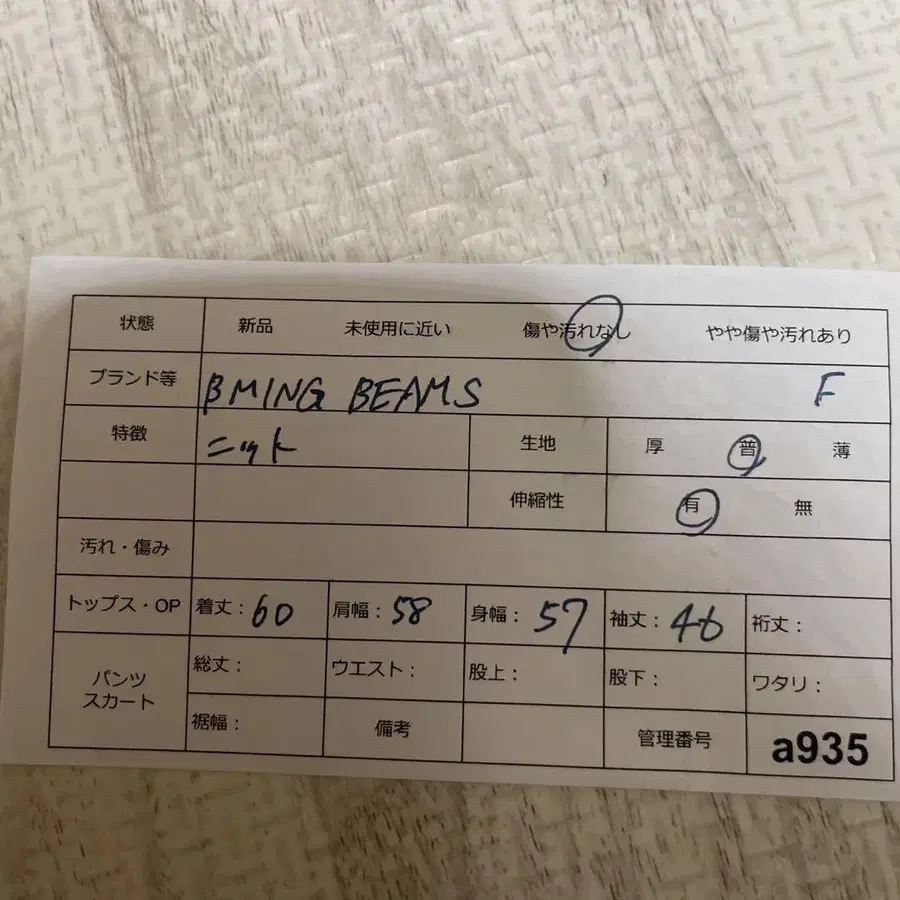 状態 新品 未使用に近い 傷や汚れなし やや傷や汚れあり
ブランド等 BMING BEAMS F
特徴 ニット 生地 厚 普 薄
伸縮性 有 無
汚れ・傷み
トップス・OP 着丈：60 肩幅：58 身幅：57 袖丈：46 裄丈：
パンツ スカート 総丈： ウエスト： 股上： 股下： ワタリ：
裾幅： 備考 管理番号 a935